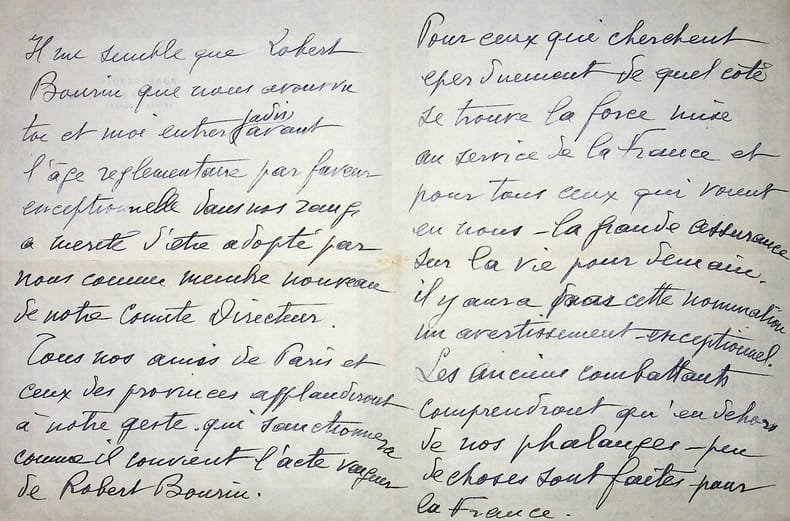 Il me semble que Robert
Bourin que nous avons vu
toi et moi entrer jadis avant
l'âge reglementaire par faveur
exceptionnelle dans nos rangs
a merité d'être adopté par
nous comme membre nouveau
de notre Comite Directeur.
Tous nos amis de Paris et
ceux des provinces applaudiront
à notre geste qui sanctionnera
comme il convient l'acte
de Robert Bourin.
Pour ceux qui cherchent
eperduement de quel coté
se trouve la force mise
au service de la France et
pour tous ceux qui voient
en nous - la grande assurance
sur la vie pour demain.
il y aura dans cette nomination
un avertissement - exceptionnel.
Les anciens combattants
comprendront qu'en dehors
de nos phalanges - peu
de choses sont faites pour
la France.